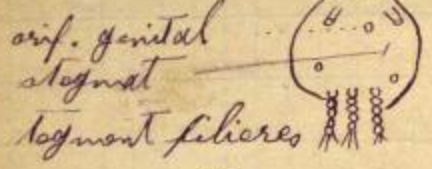 orif. genital
stegmat
tegment filieres